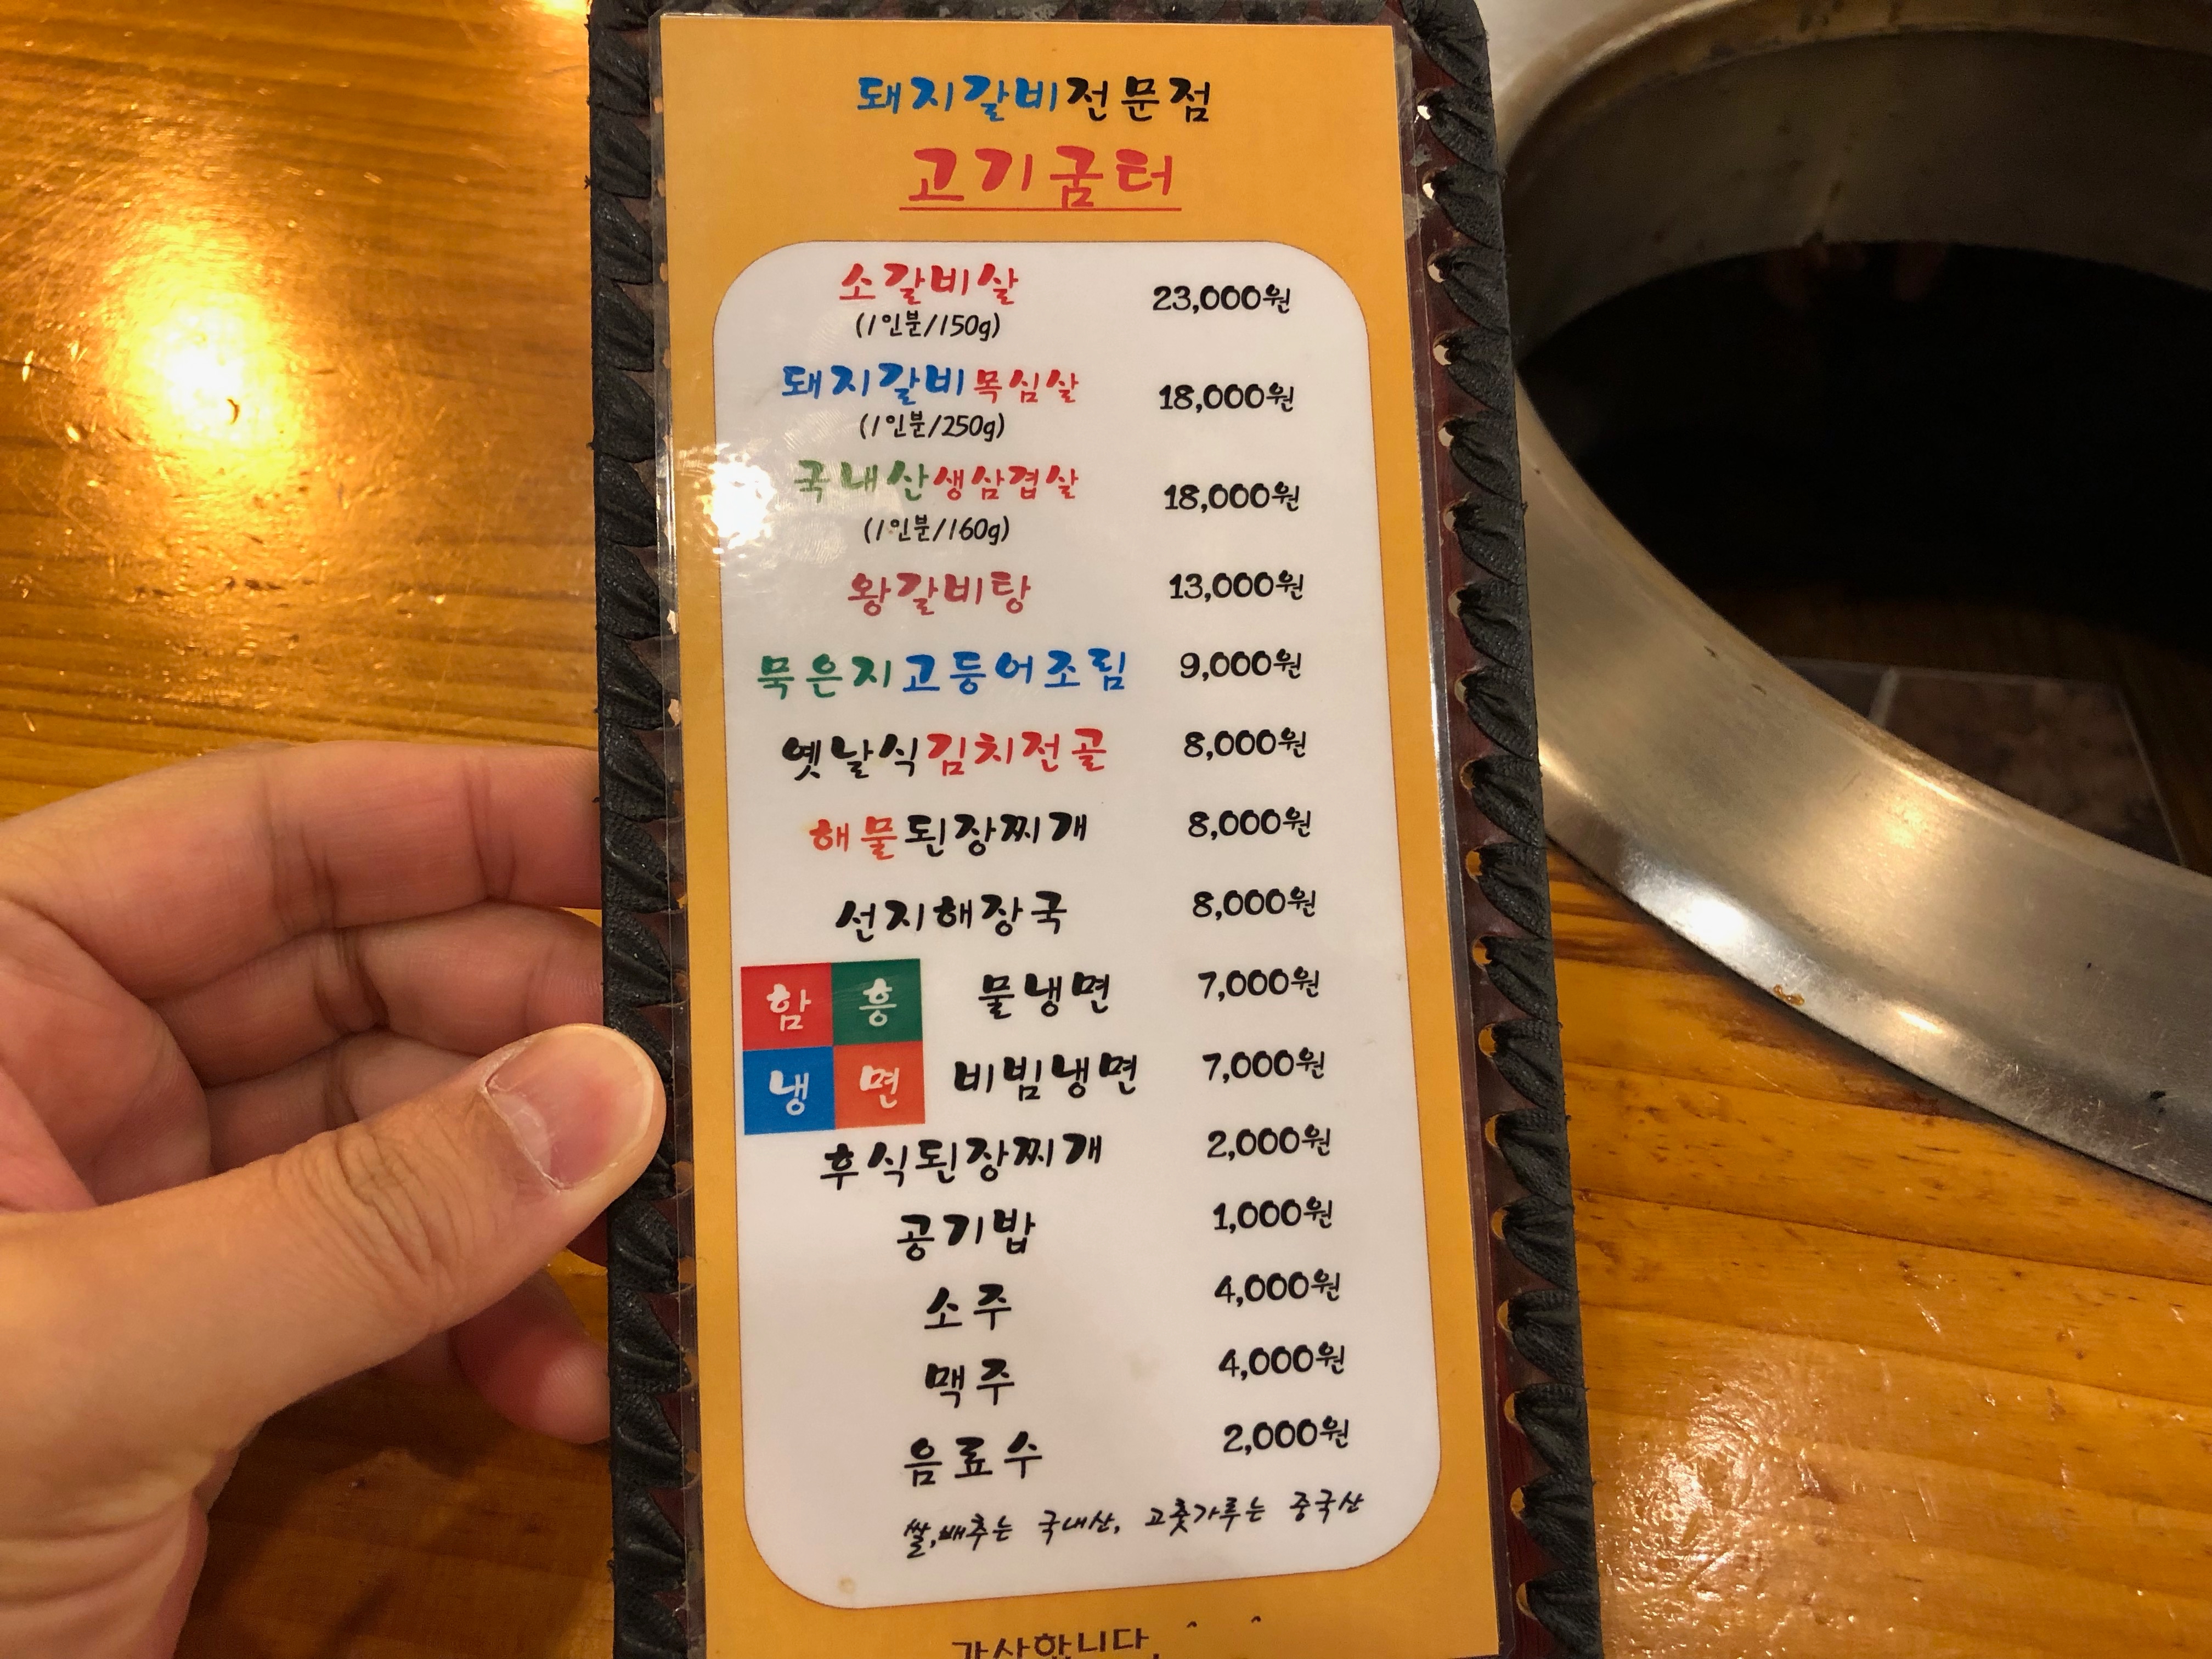 돼지갈비전문점
고기굼터
소갈비살 23,000원
(1인분/150g)
돼지갈비목심살 18,000원
(1인분/250g)
국내산생삼겹살 18,000원
(1인분/160g)
왕갈비탕 13,000원
묵은지고등어조림 9,000원
옛날식김치전골 8,000원
해물된장찌개 8,000원
선지해장국 8,000원
함흥 물냉면 7,000원
냉면 비빔냉면 7,000원
후식된장찌개 2,000원
공기밥 1,000원
소주 4,000원
맥주 4,000원
음료수 2,000원
쌀,배추는 국내산, 고춧가루는 중국산
감사합니다. ^ ^